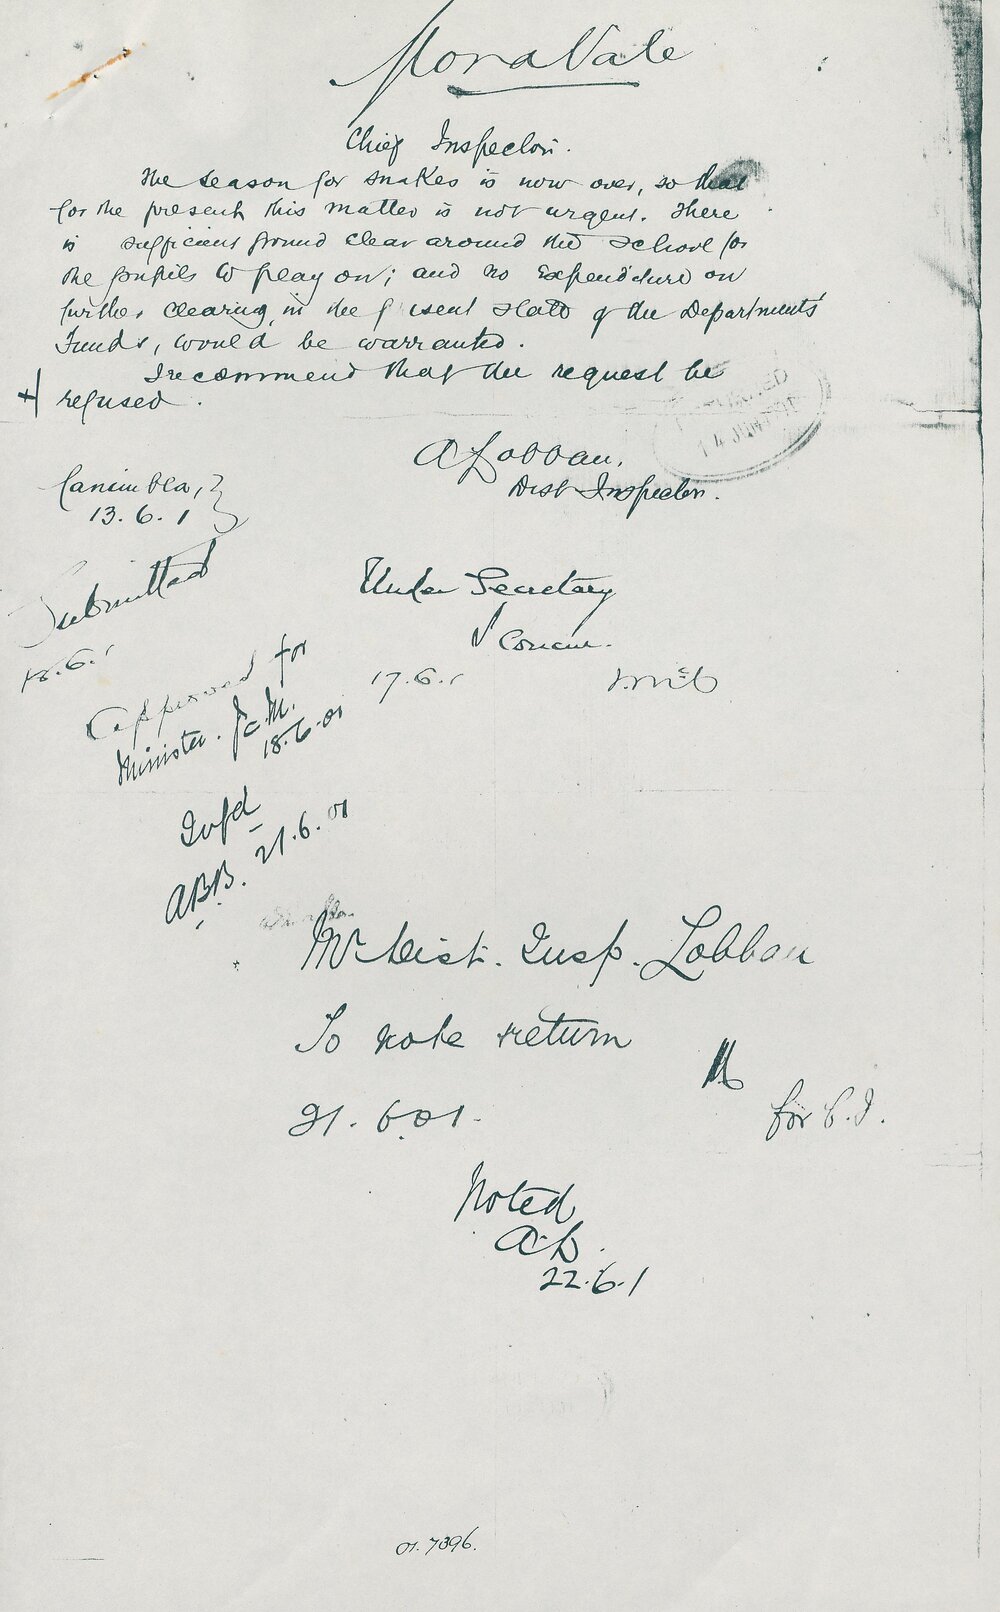 Mona Vale
Chief Inspector.
The season for snakes is now over, so that
for the present this matter is not urgent. There
is sufficient ground clear around the school for
the pupils to play on; and no expenditure on
further clearing, in the present state of the Departments'
Funds, would be warranted.
I recommend that the request be
refused.
A Lobban,
Dist Inspector.
Canimbla,
13.6.1
Submitted
18.6.1
Under Secretary
I Concur.
17.6.1
Approved for
Minister. J.C.M.
18.6.01
Infd
ABB. 21.6.01
Mr Dist. Insp. Lobban
To note & return
21.6.01.
for C.I.
Noted
A.L.
22.6.1
01.7396.